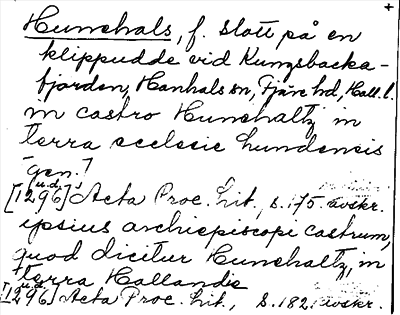 Hunehals, f. slott på en
klippudde vid Kungsbacka-
fjorden, Hanhals sn, Fjäre hd, Hall. l.
in castro Hunehaltz in
terra ecclesie lundensis
Gen.
[1296] u.d. Acta Proc. Lit., s. 175 avskr.
ipsius archiepiscopi castrum,
quod dicitur Hunehaltz, in
terra Hallandie
[1296] u.d. Acta Proc. Lit., s. 182 avskr.